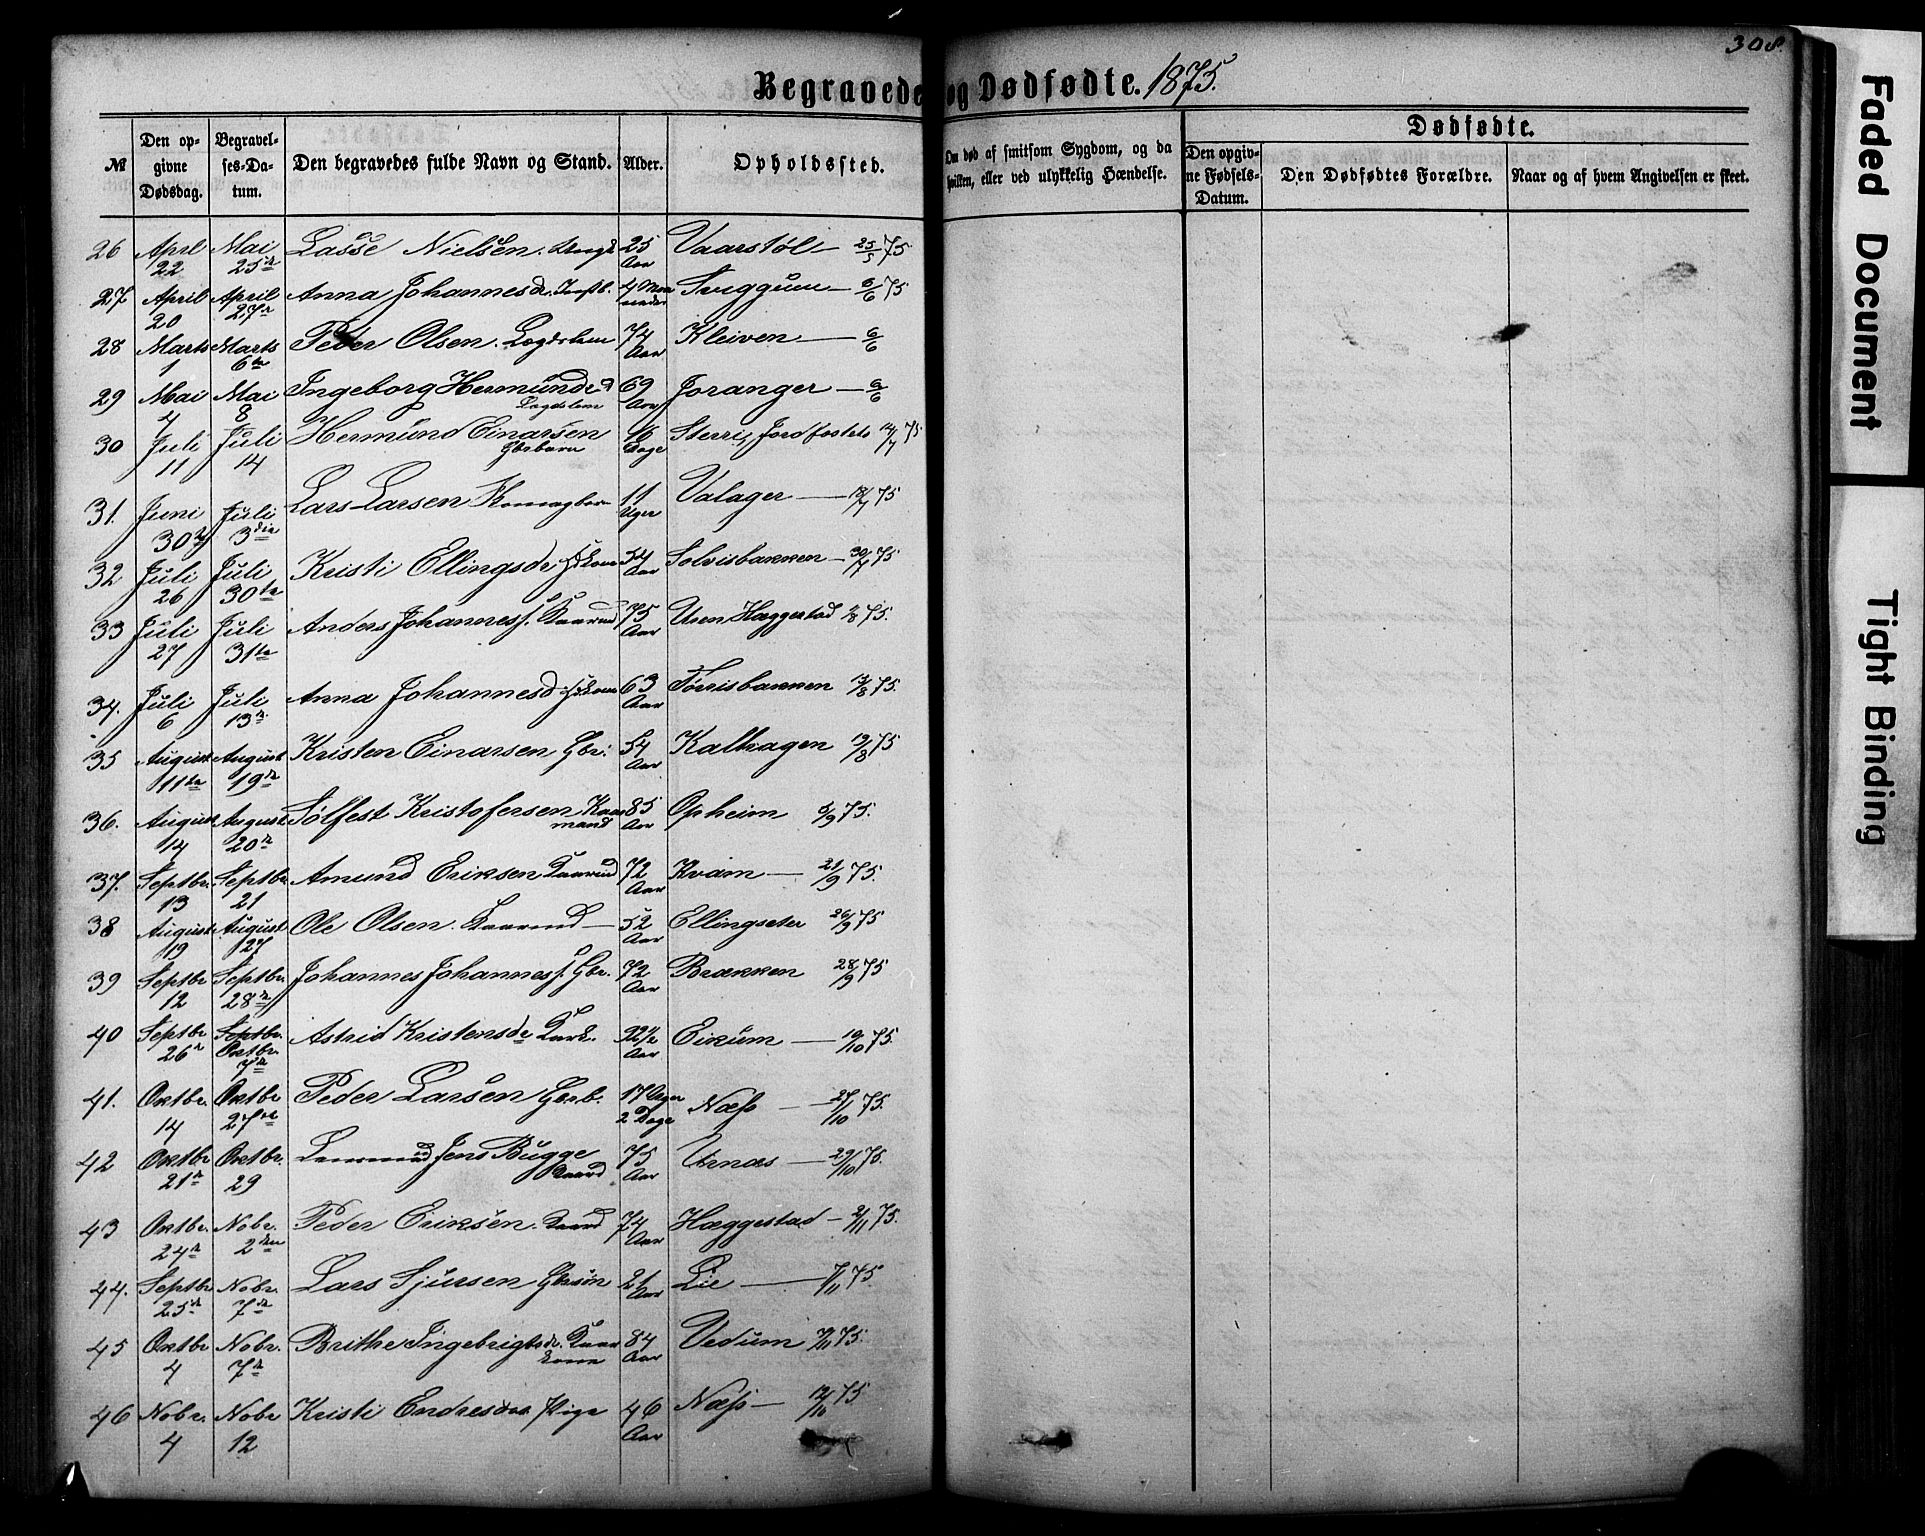 308.
Begravede og Dødfødte. 1875.
№
Den opgivne Dødsdag.
Begravelses-Datum.
Den begravedes fulde Navn og Stand.
Alder.
Opholdssted.
Om død af smitsom Sygdom, og da hvilken, eller ved ulykkelig Hændelse.
Dødfødte.
Den opgivne Fødsels-Datum.
Den Dødfødtes Forældre.
Naar og af hvem Angivelsen er skeet.
26 April 22 Mai 25de Lasse Nielsen. 25 Aar Vaarstøl — 25/5 75
27 April 20 April 27de Anna Johannesdr. Inste. 4 Maaneder Sviggum — 6/6 75
28 Marts Marts 6te Peder Olsen. Lægdslem 74 Aar Kleiven — 6/6
29 Mai 4 Mai 8 Ingeborg Hermundsd Lægdslem 69 Aar Joranger — 6/6
30 Juli 11 Juli 14 Hermund Einarsen Gbrbarn 16 Dage Sterri, Jordfæstet 14/7 75
31. Juni 30 Juli 3die Lars Larsen 11 Uger Valager — 18/7 75
32 Juli 26 Juli 30te Kristi Ellingsdr. Hskone 54 Aar Solvisbakken — 30/7 75
33 Juli 27 Juli 31te Anders Johanness. Kaarmd 75 Aar Uren Hæggestad 2/8 75.
34. Juli 6 Juli 13de Anna Johannesd Hskone 63 Aar Tørrisbakken 13/8 75.
35 August 11te August 19de Kristen Einarsen Gbr. 54 Aar Kalhagen 19/8 75
36. August 14 August 20de Sølfest Kristofersen Kaarmand 85 Aar Opheim 5/9 75.
37. Septbr. 13 Septbr. 21 Amund Eriksen Kaarmd 72 Aar Kvam — 21/9 75.
38 August 19 August 27 Ole Olsen. Kaarmd — 52 Aar Ellingseter 26/9 75
39 Septbr 12 Septbr. 28de Johannes Johanness. Gbr. 72 Aar Brækken 28/9 75
40 Septbr 26de Septbr. Oktbr. 7de Astrid Kristensdr Kark. 92 1/2 Aar Eikum — 10/10 75.
41. Oktbr. 14 Oktbr 27de Peder Larsen Gbrb. 17 Uger 2 Dage Næss — 27/10 75.
42 Oktbr 21de Oktbr. 29 Lensmand Jens Bugge Kaard 75 Aar Urnæs — 29/10 75.
43 Oktbr. 24de Nobr. 2den Peder Eriksen. Kaard 74 Aar Hæggestad — 2/11 75.
44. Septbr 25de Nobr. 7de Lars Sjursen Gbrsøn 21 Aar Lie — 7/11 75.
45 Oktbr 4 Nobr. 7de Brithe Ingebrigtsdr. Kaarkone 84 Aar Vedum 7/11 75.
46 Nobr. 4 Nobr 12 Kristi Endresdtr Pige 46 Aar Næss — 12/10 75
Faded Document
Tight Binding